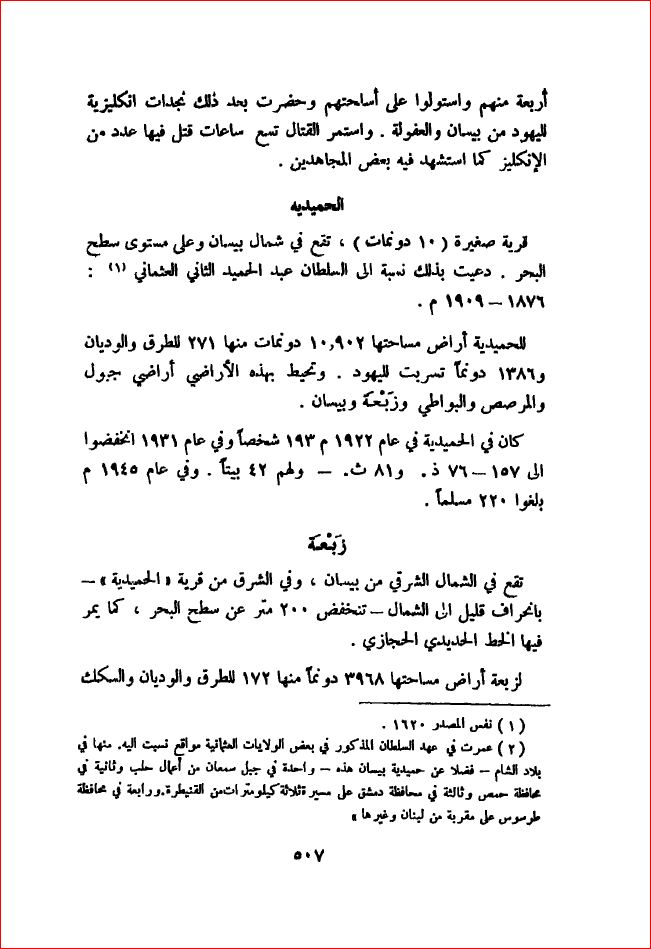 أربعة منهم واستولوا على أسلحتهم وحضرت بعد ذلك نجدات انكليزية
لليهود من بيسان والعفولة . واستمر القتال تسع ساعات قتل فيها عدد من
الإنكليز كما استشهد فيه بعض المجاهدين .
الحميديه
قرية صغيرة ( ١٠ دونمات ) ، تقع في شمال بيسان وعلى مستوى سطح
البحر . دعيت بذلك نسبة الى السلطان عبد الحميد الثاني العثماني (١) :
١٨٧٦ – ١٩٠٩ م .
للحميدية أراض مساحتها ١٠,٩٠٢ دونمات منها ٢٧١ للطرق والوديان
و١٣٨٦ دونماً تسربت لليهود . وتحيط بهذه الأراضي أراضي جبول
والمرصص والبواطي وزَبْعَة وبيسان .
كان في الحميدية في عام ١٩٢٢ م ١٩٣ شخصاً وفي عام ١٩٣١ انخفضوا
الى ١٥٧ – ٧٦ ذ . و٨١ ث. – ولهم ٤٢ بيتاً . وفي عام ١٩٤٥ م
بلغوا ٢٢٠ مسلماً .
زَبْعَة
تقع في الشمال الشرقي من بيسان ، وفي الشرق من قرية « الحميدية » –
بانحراف قليل الى الشمال – تنخفض ٢٠٠ متر عن سطح البحر ، كما يمر
فيها الخط الحديدي الحجازي .
لزبعة أراض مساحتها ٣٩٦٨ دونماً منها ١٧٢ للطرق والوديان والسكك
( ١ ) نفس المصدر ١٦٢٠ .
( ٢ ) عمرت في عهد السلطان المذكور في بعض الولايات العثمانية مواقع نسبت اليه. منها في
بلاد الشام – فضلا عن حميدية بيسان هذه – واحدة في جبل سمعان من أعمال حلب وثانية في
محافظة حمص وثالثة في محافظة دمشق على مسيرة ثلاثة كيلومترات من القنيطرة. ورابعة في محافظة
طرسوس على مقربة من لبنان وغيرها »
٥٠٧